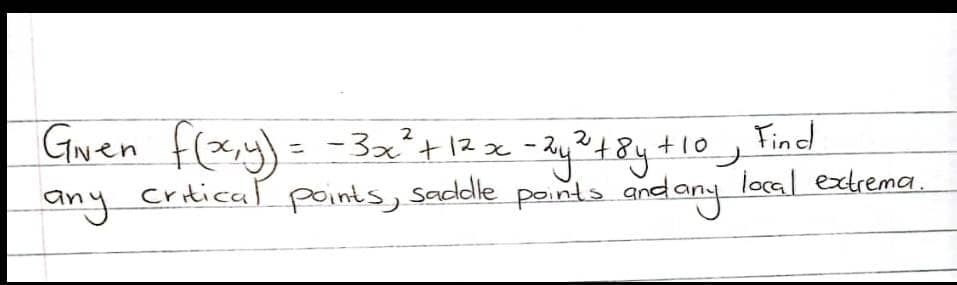 Given f(x,y) = -3x² + 12x - 2y² + 8y + 10, Find
any critical points, saddle points and any local extrema.